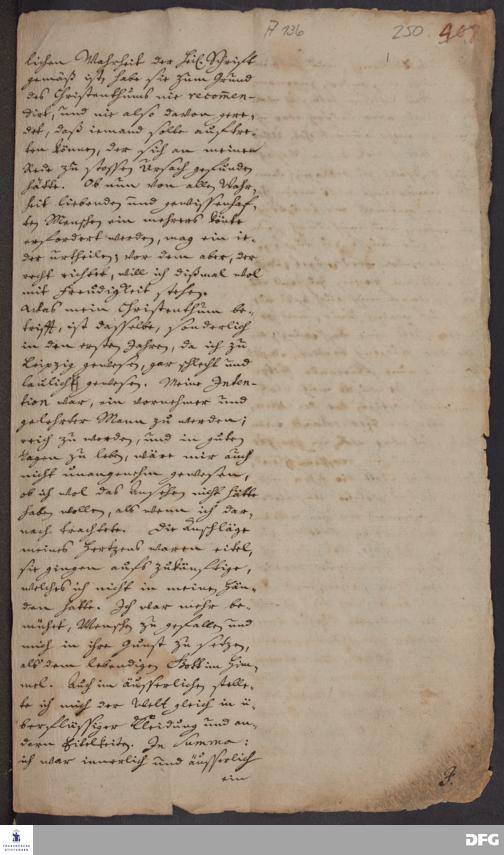 A 136 250
lichen Wahrheit der Heil. Schrifft
gemäß ist, habe sie zum Grund
des Christenthums nie recom̃en-
dirt, und nie also davon gere-
det, daß iemand solte aufftre-
ten können, der sich an meiner
Rede zu stossen Ursach gefunden
hätte. Ob nun von alle Wahr-
heit liebenden und gewissenhaf-
ten Menschen ein mehrers könte
erfordert werden, mag ein ie-
der urtheilen, vor dem aber, der
recht richtet, will ich dißmal wol
mit Freudigkeit stehen.
Was mein Christenthum be-
trifft, ist dasselbe, sonderlich
in den ersten Jahren, da ich zu
Leipzig gewesen, gar schlecht und
laulicht gewesen. Meine Inten-
tion war, ein vornehmer und
gelehrter Mann zu werden;
reich zu werden, und in guten
Tagen zu leben, wäre mir auch
nicht unangenehm gewesen,
ob ich wol das Ansehen nicht hätte
haben wollen, als wenn ich dar-
nach trachtete. Die Anschläge
meines Hertzens waren eitel,
sie gingen aufs zukünfftige,
welches ich nicht in meinen Hän-
den hatte. Ich war mehr be-
mühet, Menschen zu gefallen und
mich in ihre Gunst zu setzen,
als dem lebendigen Gott im Him-
mel. Auch im äusserlichen stelle-
te ich mich der Welt gleich in ü-
berflüssiger Kleidung und an-
dern Eitelkeiten. In Summa:
ich war innerlich und äusserlich
ein
FRANCKESCHE STIFTUNGEN
DFG